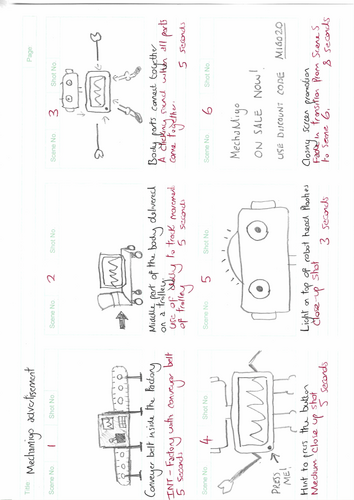 Title Mechamigo advertisement
Page
Scene No. 1 Shot No.
Conveyer belt inside the factory
INT - Factory with conveyer belt
5 seconds
Scene No. 2 Shot No.
Middle part of the body delivered
on a trolley.
Use of dolly to track movement
of trolley 5 seconds
Scene No. 3 Shot No.
Body parts connect together
A clicking sound when all parts
come together.
5 seconds
Scene No. 4 Shot No.
PRESS
ME!
Hint to press the button
Medium close up shot
5 seconds
Scene No. 5 Shot No.
Light on top of robot head flashes
Close-up shot
3 seconds
Scene No. 6 Shot No.
MechaMigo
ON SALE NOW!
USE DISCOUNT CODE MIGO20
Closing screen promotion
Fade in transition from Scene 5
to Scene 6.
8 seconds